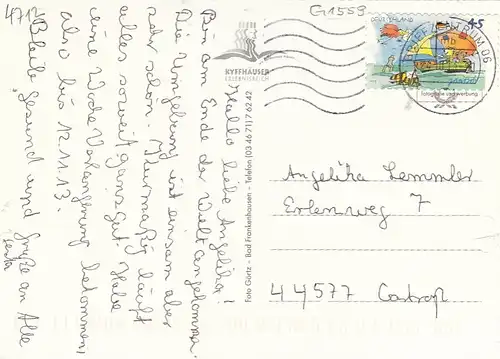 4712
G1559
Hallo liebe Angelika!
Bin am Ende der Welt angekommen.
Die Umgebung ist einsam aber
sehr schön. Kurmäßig läuft
alles soweit ganz gut. Habe
eine Woche Verlängerung bekommen,
also bis 12.11.13.
Bleibe gesund und Grüße an Alle
KYFFHÄUSER
ERLEBNISREICH
Foto Görtz - Bad Frankenhausen - Telefon (03 46 71) 7 62 42
DEUTSCHLAND
45
BRIEFZENTRUM 06
Angelika Lemmler
Erlenweg 7
44577 Castrop